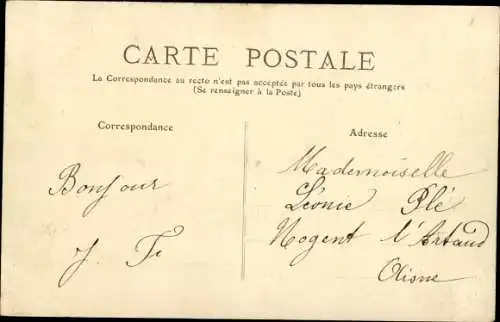 CARTE POSTALE
La Correspondance au recto n'est pas acceptée par tous les pays étrangers
(Se renseigner à la Poste)
Correspondance
Adresse
Bonjour
J. Fi
Mademoiselle
Léonie Plé
Nogent l'Artaud
Aisne